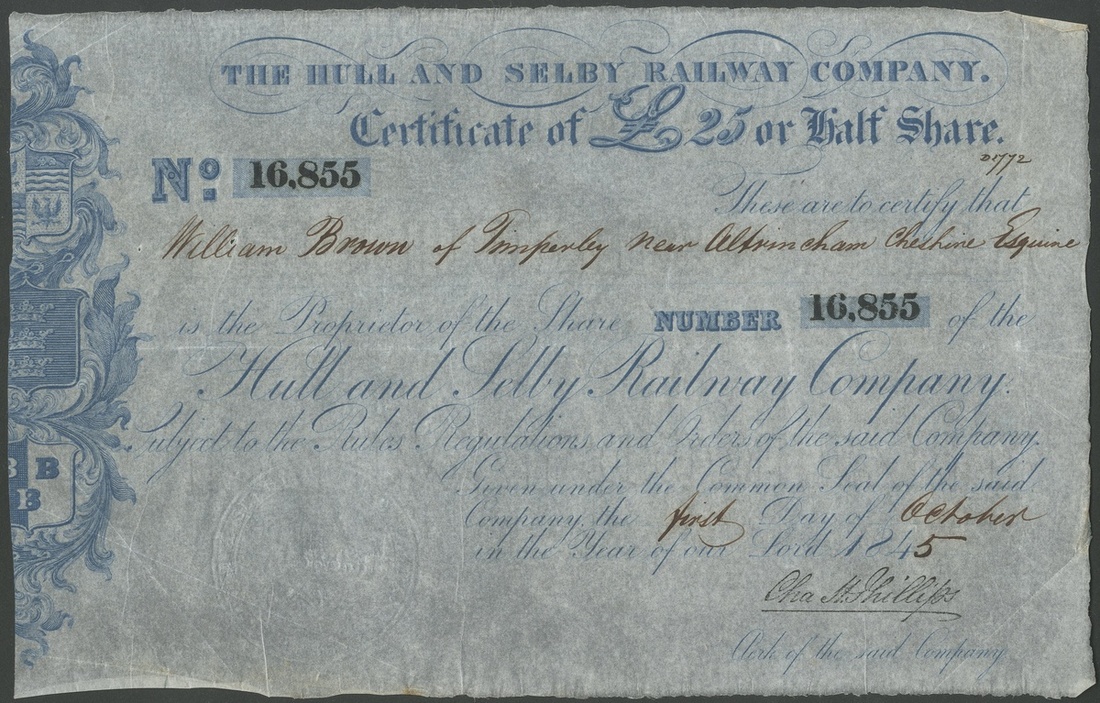 THE HULL AND SELBY RAILWAY COMPANY.
Certificate of £25 or Half Share.
No. 16,855
D 1772
These are to certify that
William Brown of Timperley near Altrincham Cheshire Esquire
is the Proprietor of the Share NUMBER 16,855 of the
Hull and Selby Railway Company.
Subject to the Rules Regulations and Orders of the said Company.
Given under the Common Seal of the said
Company, the first Day of October
in the Year of our Lord 1845
Cha H. Phillips
Clerk of the said Company
B B
B